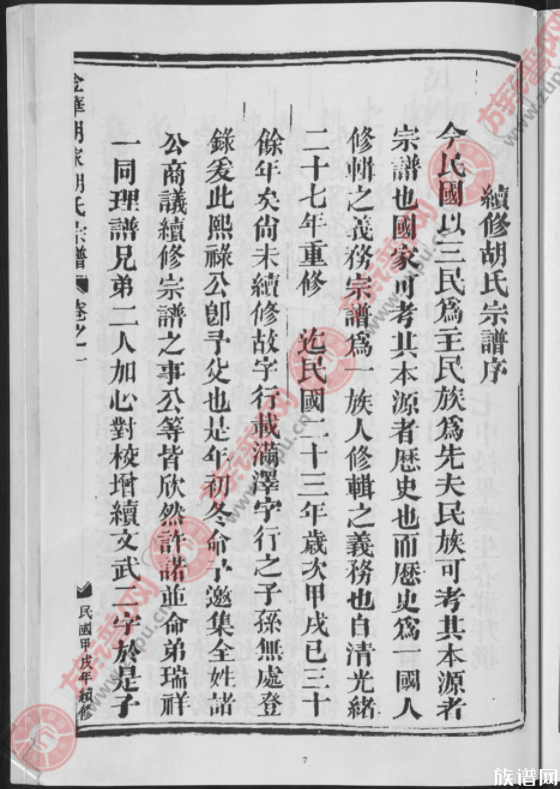 續修胡氏宗譜序
今民國以三民爲主民族爲先夫民族可考其本源者
宗譜也國家可考其本源者歷史也而歷史爲一國人
修輯之義務宗譜爲一族人修輯之義務也自清光緒
二十七年重修 迄民國二十三年歲次甲戌已三十
餘年矣尚未續修故字行載滿澤字行之子孫無處登
錄爰此熙祿公卽予父也是年初冬命予邀集全姓諸
公商議續修宗譜之事公等皆欣然許諾並命弟瑞祥
一同理譜兄弟二人加心對校增續文武二字於是子
金華胡家胡氏宗譜 卷之一
民國甲戌年續修
7
族谱网 www.zupu.cn
族谱网